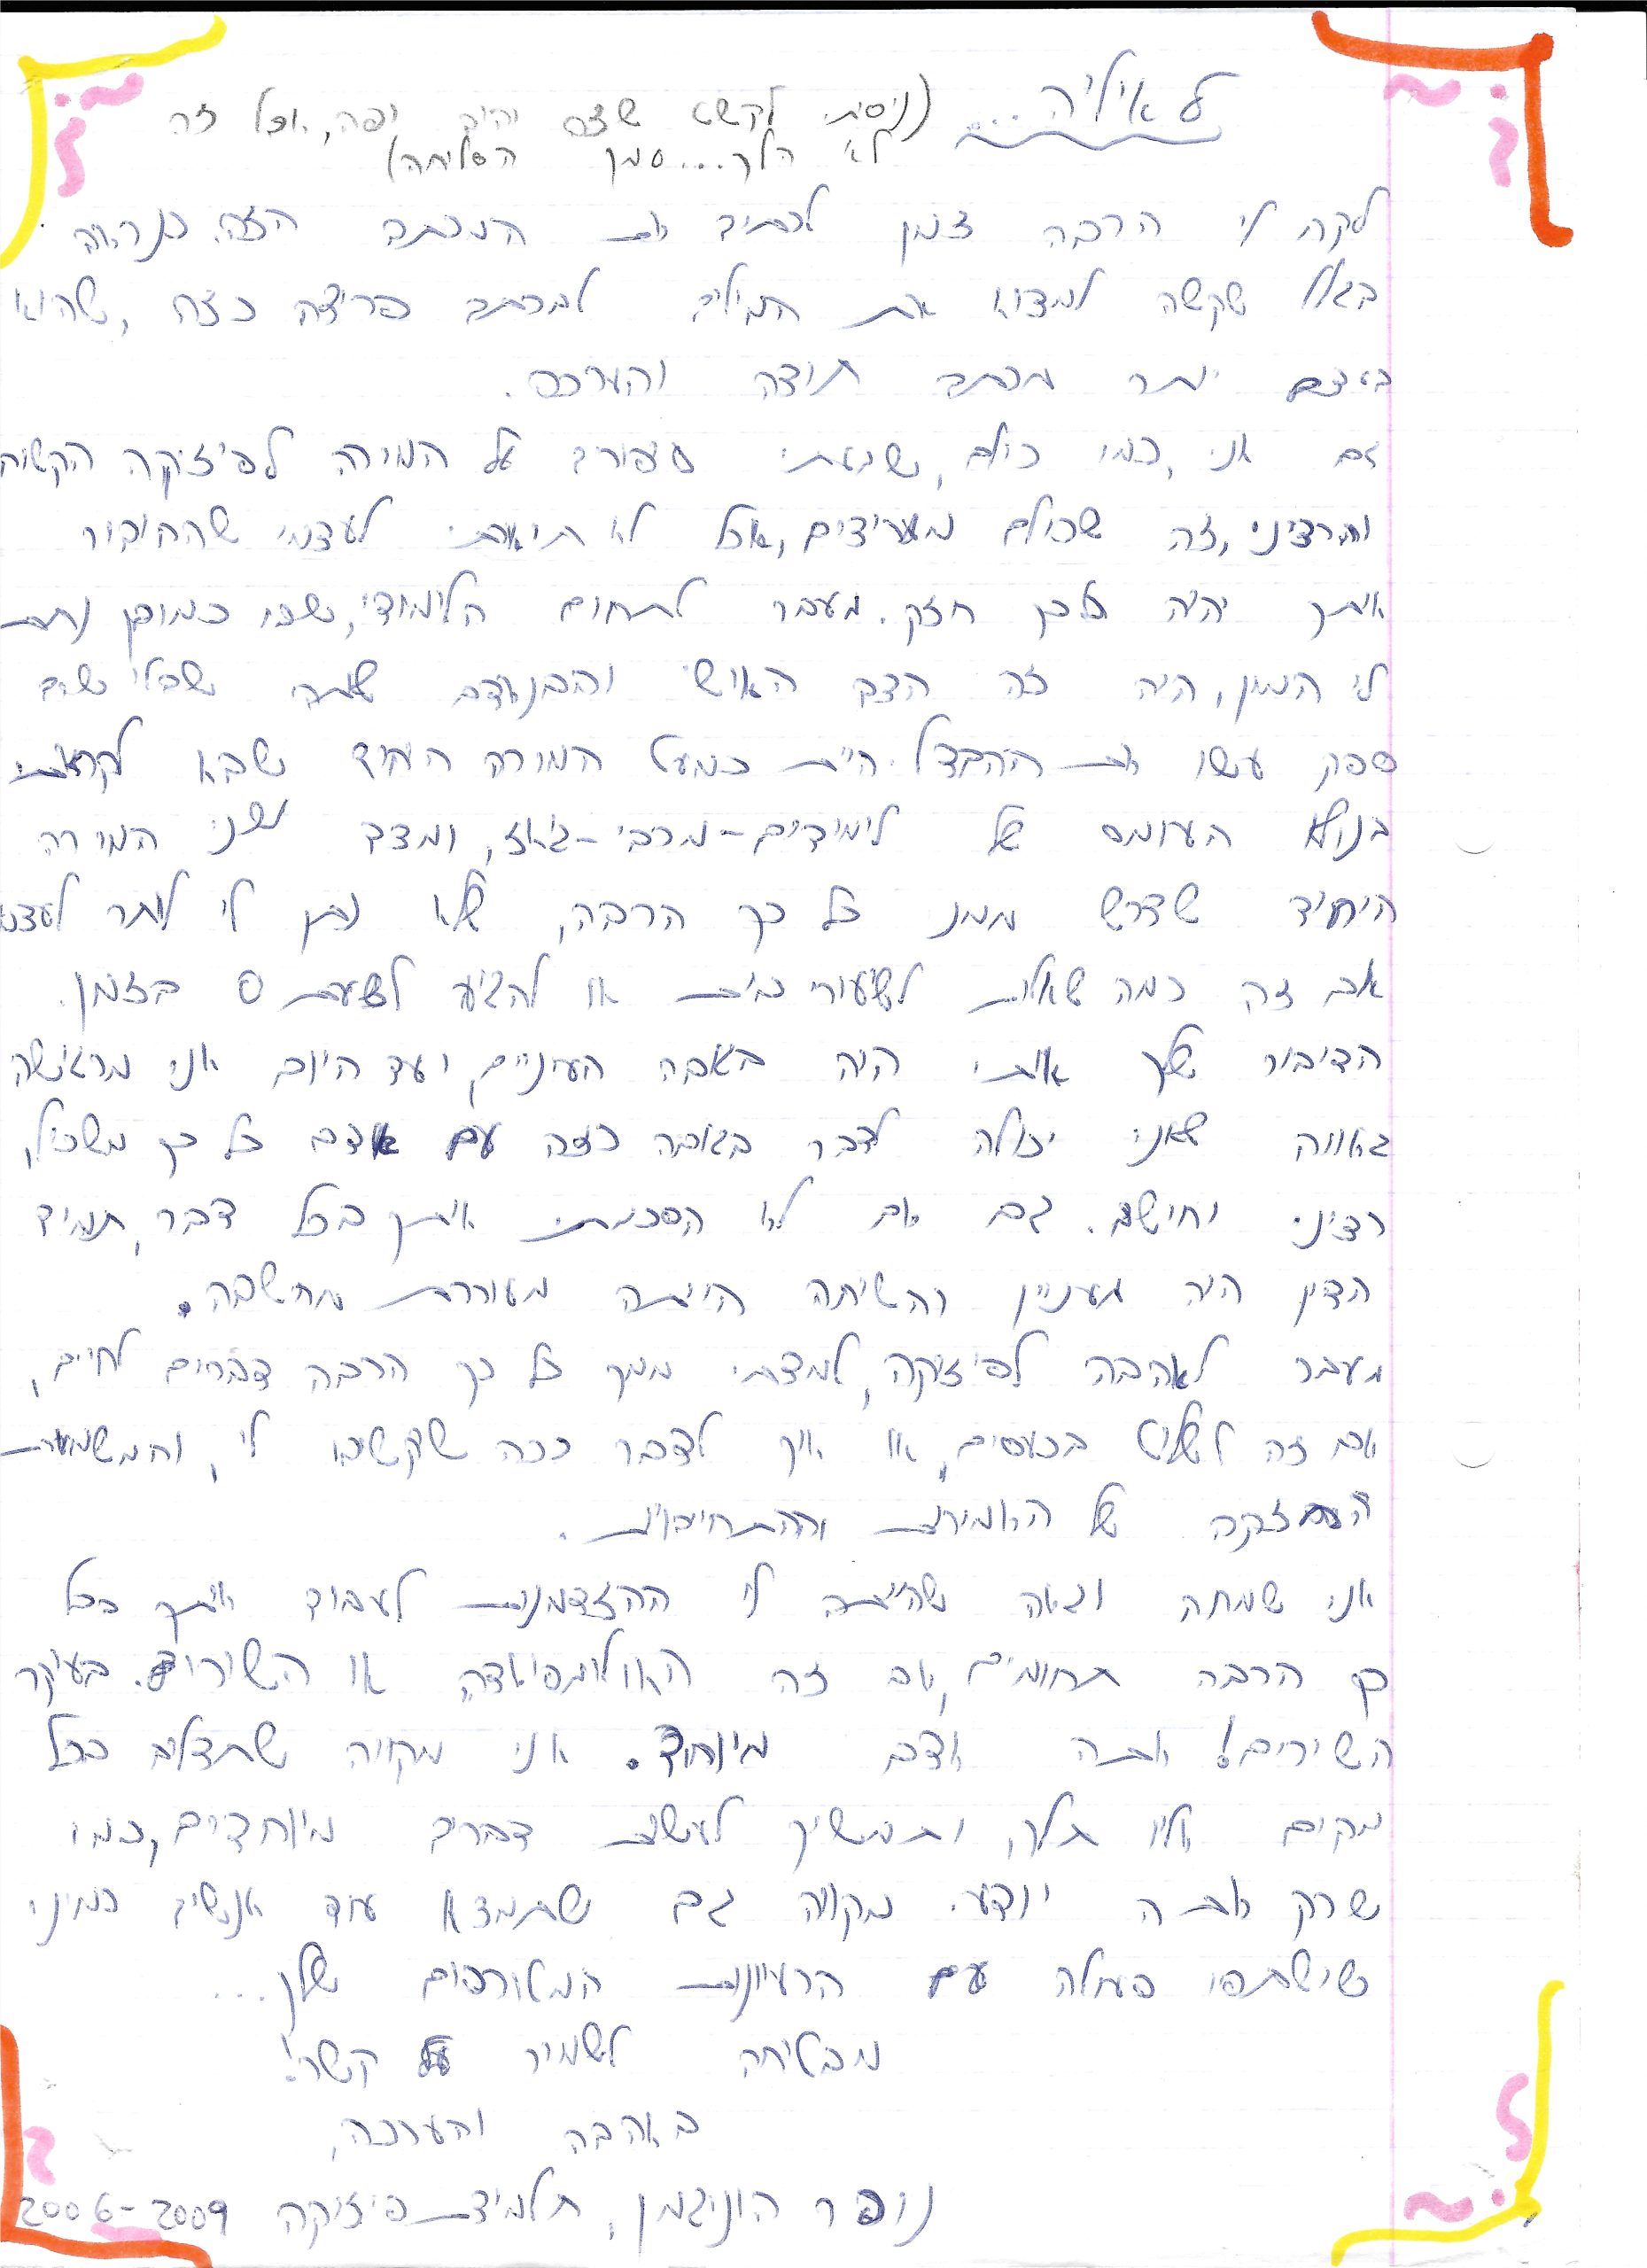 לאיליה... (ניסיתי לקשט שזה יהיה יפה, אבל זה
לא הלך... סמן הסליחה)
לקח לי הרבה זמן לכתוב את המכתב הזה. כנראה
בגלל שקשה למצוא את המילים למכתב פרידה כזה, שהוא
בעצם יותר מכתב תודה והערכה.
גם אני, כמו כולם, שמעתי סיפורים על המורה לפיזיקה הקשוח
והרציני, זה שכולם מעריצים, אבל לא תיארתי לעצמי שהחיבור
איתך יהיה כל כך חזק. מעבר לתחום הלימודי, שבו כמובן נתת
לי המון, היה זה הצד האישי והבנאדם שאתה שבלי שום
ספק עשו את ההבדל. היית כמעט המורה היחיד שבא לקראתי
בנושא העומס של לימודים-מרבי-ג'אז, ומצד שני המורה
היחיד שדרש ממני כל כך הרבה, שלא נתן לי לוותר לעצמי
אם זה כמה שאלות לשיעורי בית או להגיע לשעת 0 בזמן.
הדיבור שלך אותי היה בגובה העיניים, ועד היום אני מרגישה
גאווה שאני יכולה לדבר בגובה כזה עם אדם כל כך משכיל,
רציני וחושב. גם אם לא הסכמתי איתך בכל דבר, תמיד
הדיון היה מעניין והשיחה הייתה מעוררת מחשבה.
מעבר לאהבה לפיזיקה, למדתי ממך כל כך הרבה דברים לחיים,
אם זה לשלוט בכעסים, או איך לדבר ככה שיקשיבו לי, והמשמעות
החזקה של האמירות וההתחייבויות.
אני שמחה וגאה שהייתה לי ההזדמנות לעבוד איתך בכל
כך הרבה תחומים, אם זה האולימפיאדה או השירים. בעיקר
השירים! אתה אדם מיוחד. אני מקווה שתצליח בכל
מקום אליו תלך, ותמשיך לעשות דברים מיוחדים, כמו
שרק אתה יודע. מקווה גם שתמצא עוד אנשים כמוני
שישתפו פעולה עם הרעיונות המטורפים שלך...
מבטיחה לשמור על קשר!
באהבה והערכה,
נופר הוניגמן, תלמידת פיזיקה 2006-2009